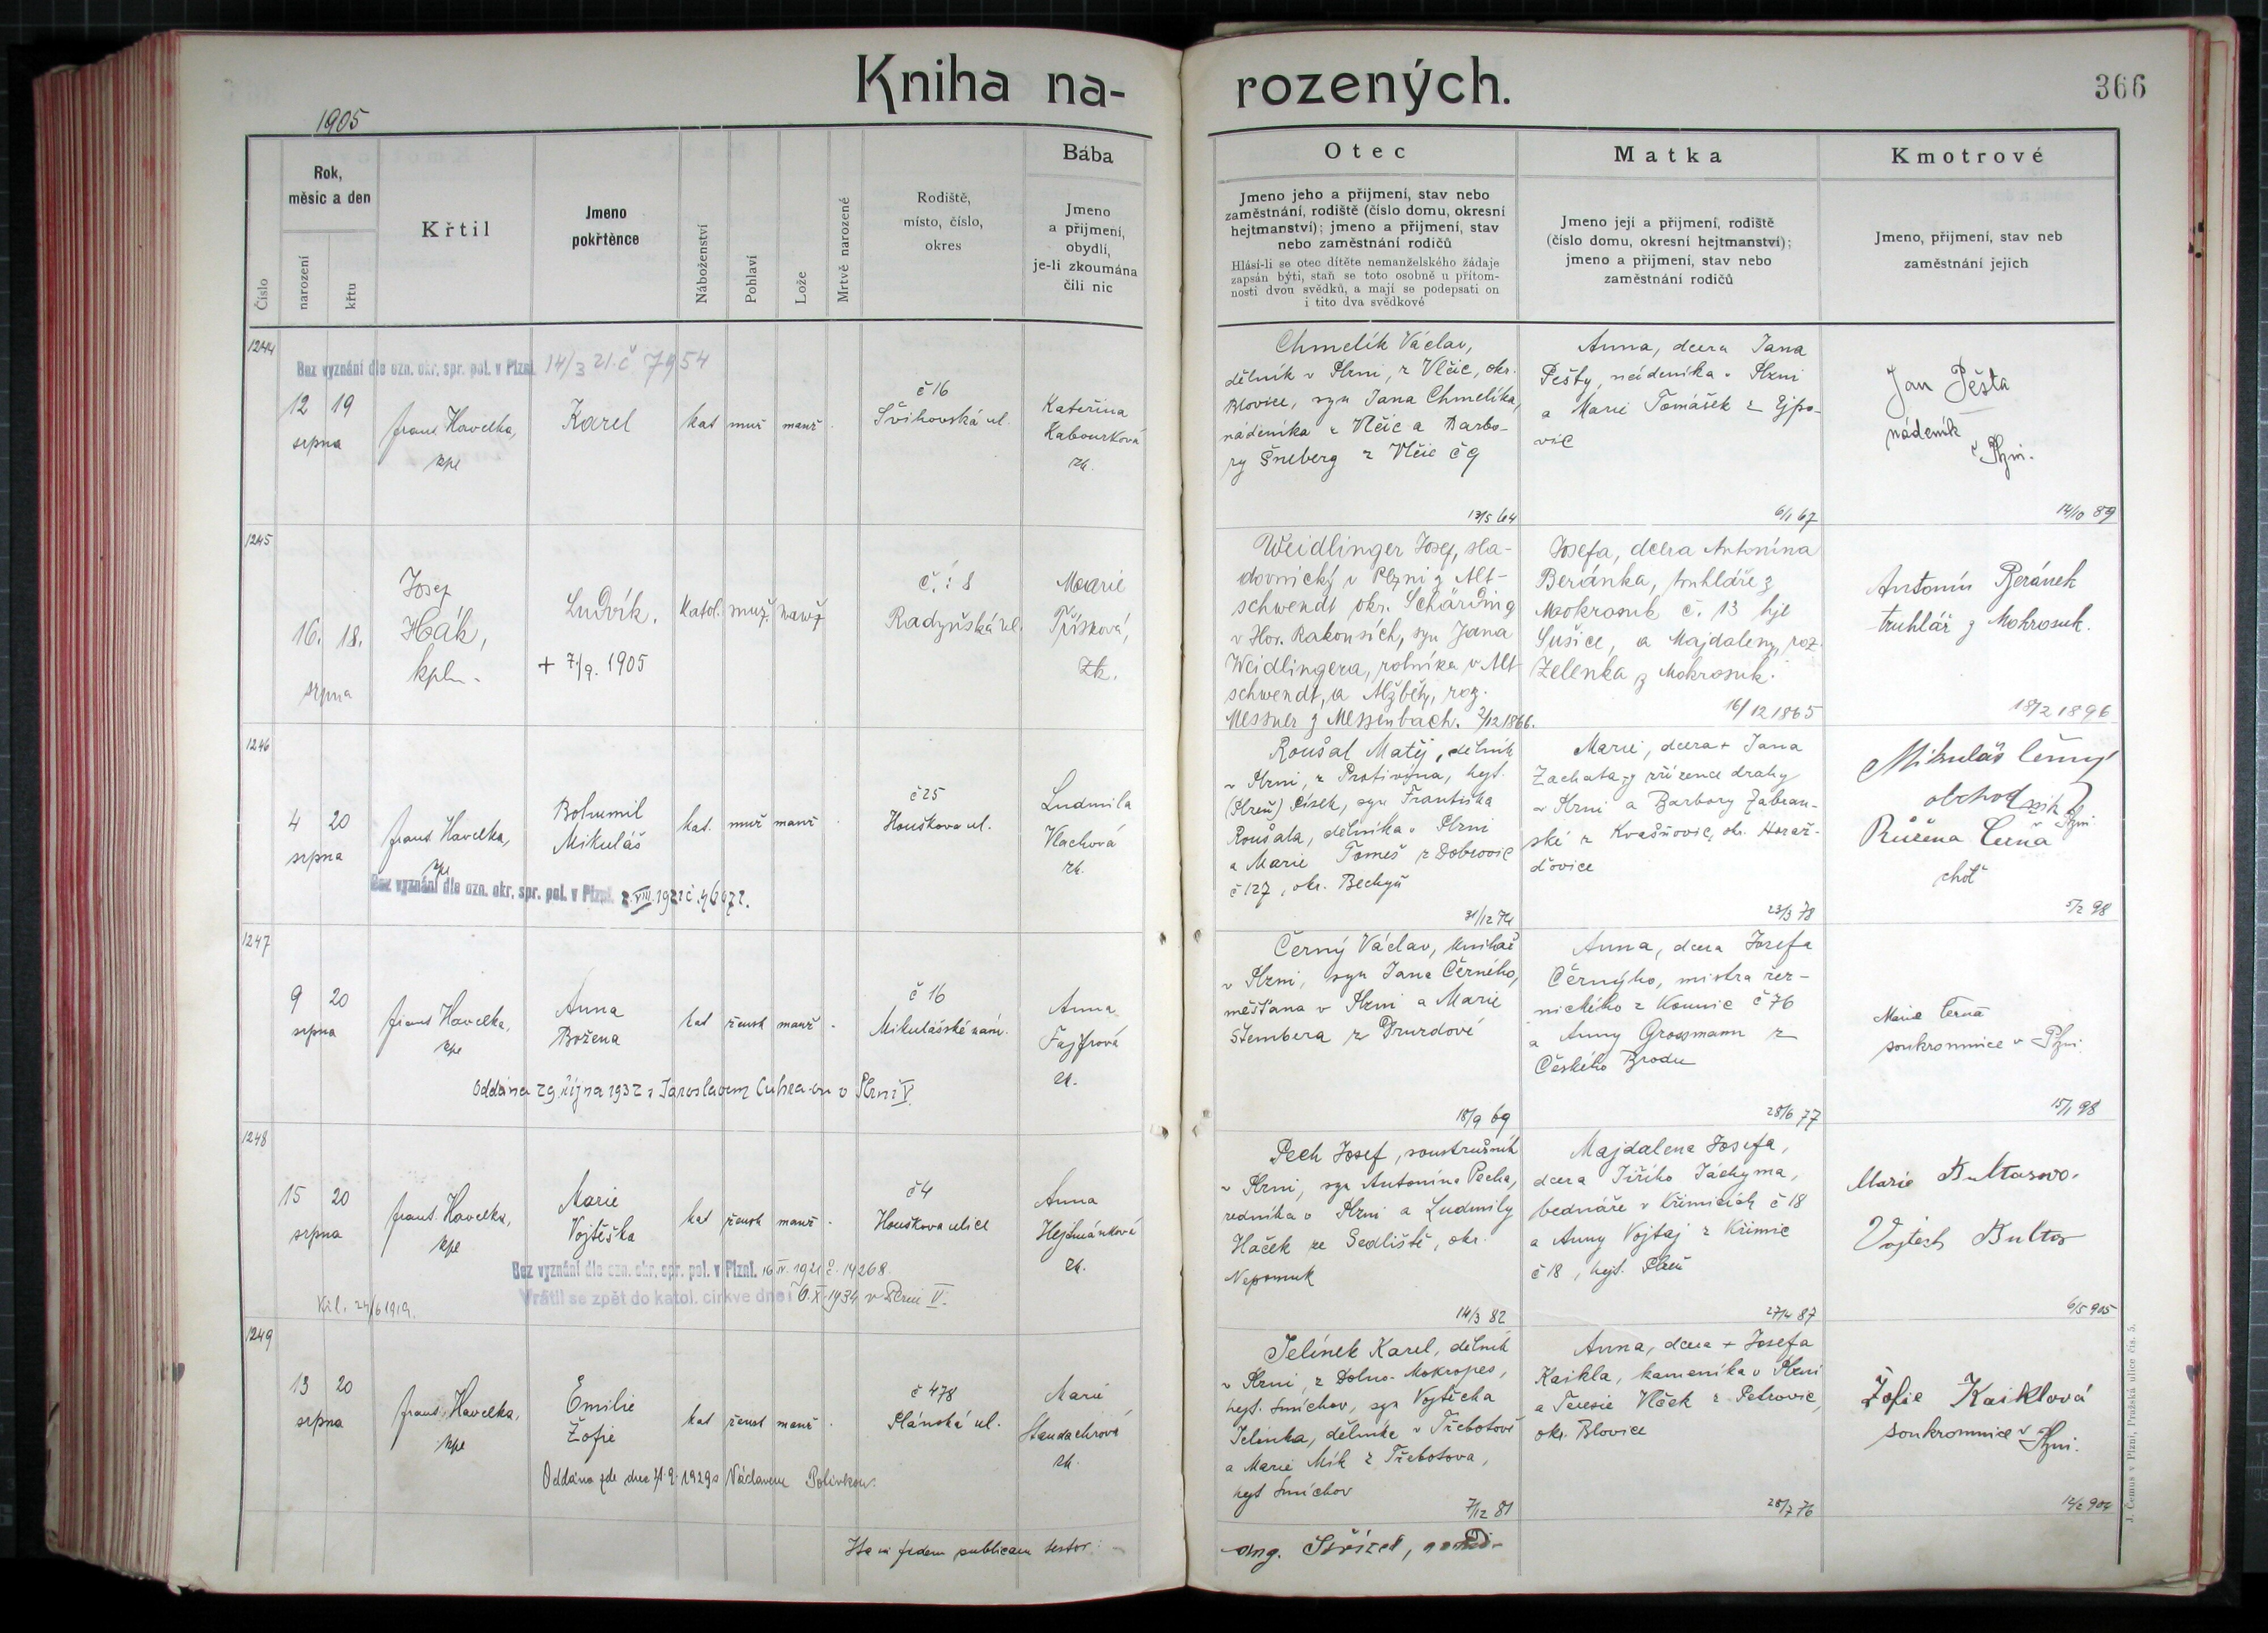 Kniha na-
rozených.
366
1905
Číslo
Rok,
měsíc a den
narození
křtu
Křtil
Jmeno
pokřtěnce
Náboženství
Pohlaví
Lože
Mrtvě narozené
Rodiště,
místo, číslo,
okres
Bába
Jmeno
a přijmení,
obydlí,
je-li zkoumána
čili nic
Otec
Jmeno jeho a přijmení, stav nebo
zaměstnání, rodiště (číslo domu, okresní
hejtmanství); jmeno a přijmení, stav
nebo zaměstnání rodičů
Hlásí-li se otec dítěte nemanželského žádaje
zapsán býti, staň se toto osobně u přítom-
nosti dvou svědků, a mají se podepsati on
i tito dva svědkové
Matka
Jmeno její a přijmení, rodiště
(číslo domu, okresní hejtmanství);
jmeno a přijmení, stav nebo
zaměstnání rodičů
Kmotrové
Jmeno, přijmení, stav neb
zaměstnání jejich
1244
Bez vyznání dle ozn. okr. spr. pol. v Plzni. 14/3 21. č 7954
12 19
srpna
Frant. Havelka,
kpl
Karel
kat muž manž
č 16
Švihovská ul.
Kateřina
Kabourková
zk.
Chmelík Václav,
dělník v Plzni, z Vlčic, okr.
Blovice, syn Jana Chmelíka,
nádeníka z Vlčic a Barbo-
ry Šneberg z Vlčic č 9
13/5 64
Anna, dcera Jana
Pešty, nádeníka v Plzni
a Marie Tomášek z Ejpo-
vic
6/1 67
Jan Pěšta
nádeník
v Plzni.
14/10 89
1245
16. 18.
srpna
Josef
Hák,
kpln.
Ludvík.
+ 7./9. 1905
katol. muž. manž
č.: 8
Radyňská ul.
Marie
Tříšková,
zk.
Weidlinger Josef, sla-
dovnický v Plzni z Alt-
schwendt okr. Schärding
v Hor. Rakousích, syn Jana
Weidlingera, rolníka v Alt-
schwendt, a Alžběty, roz.
Messner z Messenbach. 2/12 1866.
Josefa, dcera Antonína
Beránka, truhláře z
Mokrosuk č. 13 hjt
Sušice, a Majdaleny, roz.
Zelenka z Mokrosuk.
16/12 1865
Antonín Beránek
truhlář z Mokrosuk.
18/2 1896
1246
4 20
srpna
Frant. Havelka,
kpl
Bohumil
Mikuláš
kat. muž manž
č 25
Houškova ul.
Ludmila
Vlachová
zk.
Bez vyznání dle ozn. okr. spr. pol. v Plzni.
Roušal Matěj, dělník
v Plzni, z Protivína, hejt.
(Plzeň) Písek, syn Františka
Roušala, dělníka v Plzni
a Marie Tomeš z Dobrovic
č 127, okr. Bechyň
31/12 74
Marie, dcera + Jana
Zachata, zřízence drahy
v Plzni a Barbory Zabran-
ské z Kvašňovic, okr. Horaž-
ďovice
23/3 78
Mikuláš Černý
obchodník v Plzni
Růžena Černá
choť
5/2 98
1247
9 20
srpna
Frant. Havelka,
kpl
Anna
Božena
kat žensk manž
č 16
Mikulášské nám.
Anna
Fajfrová
zk.
Oddána 29. října 1932 s Jaroslavem v Plzni V.
Černý Václav, knihař
v Plzni, syn Jana Černého,
měšťana v Plzni a Marie
Štembera z Drurdové
18/9 69
Anna, dcera Josefa
Černýho, mistra řez-
nického z Kounic č 76
a Anny Grossmann z
Českého Brodu
28/6 77
Marie Černá
soukromnice v Plzni.
15/1 98
1248
15 20
srpna
Frant. Havelka,
kpl
Marie
Vojtěška
kat žensk manž
č 4
Houškova ulice
Anna
Hejtmánková
zk.
Bez vyznání dle ozn. okr. spr. pol. v Plzni. 16.IV. 1921 č. 14268.
Vrátil se zpět do katol. církve dne 10. X. 1934 v Plzni V.
Křl. 24/6 1919.
Pech Josef, soustružník
v Plzni, syn Antonína Pecha,
zedníka v Plzni a Ludmily
Haček ze Sedliště, okr.
Nepomuk
14/3 82
Majdalena Josefa,
dcera Jiřího Jáchyma,
bednáře v Křimicích č 18
a Anny Vojtaj z Křimic
č 18, hejt. Plzeň
27/4 87
Marie Bultasova.
Vojtěch Bultas
6/5 905
1249
13 20
srpna
Frant. Havelka,
kpl
Emilie
Žofie
kat žensk manž
č 478
Plánská ul.
Marie
Standachrová
zk.
Oddána zde dne 21. 9. 1929 s Václavem Polívkou.
Jelínek Karel, dělník
v Plzni, z Dolno-Mokropes,
hejt. Smíchov, syn Vojtěcha
Jelínka, dělníka v Třebotově
a Marie Mik z Třebotova,
hejt Smíchov
7/12 81
Anna, dcera + Josefa
Kaikla, kameníka v Plzni
a Teresie Vlček z Petrovic,
okr. Blovice
28/7 76
Žofie Kaiklová
soukromnice v Plzni.
12/2 904
Ita in fidem publicam testor:
J. Čemus v Plzni, Pražská ulice čís. 5.